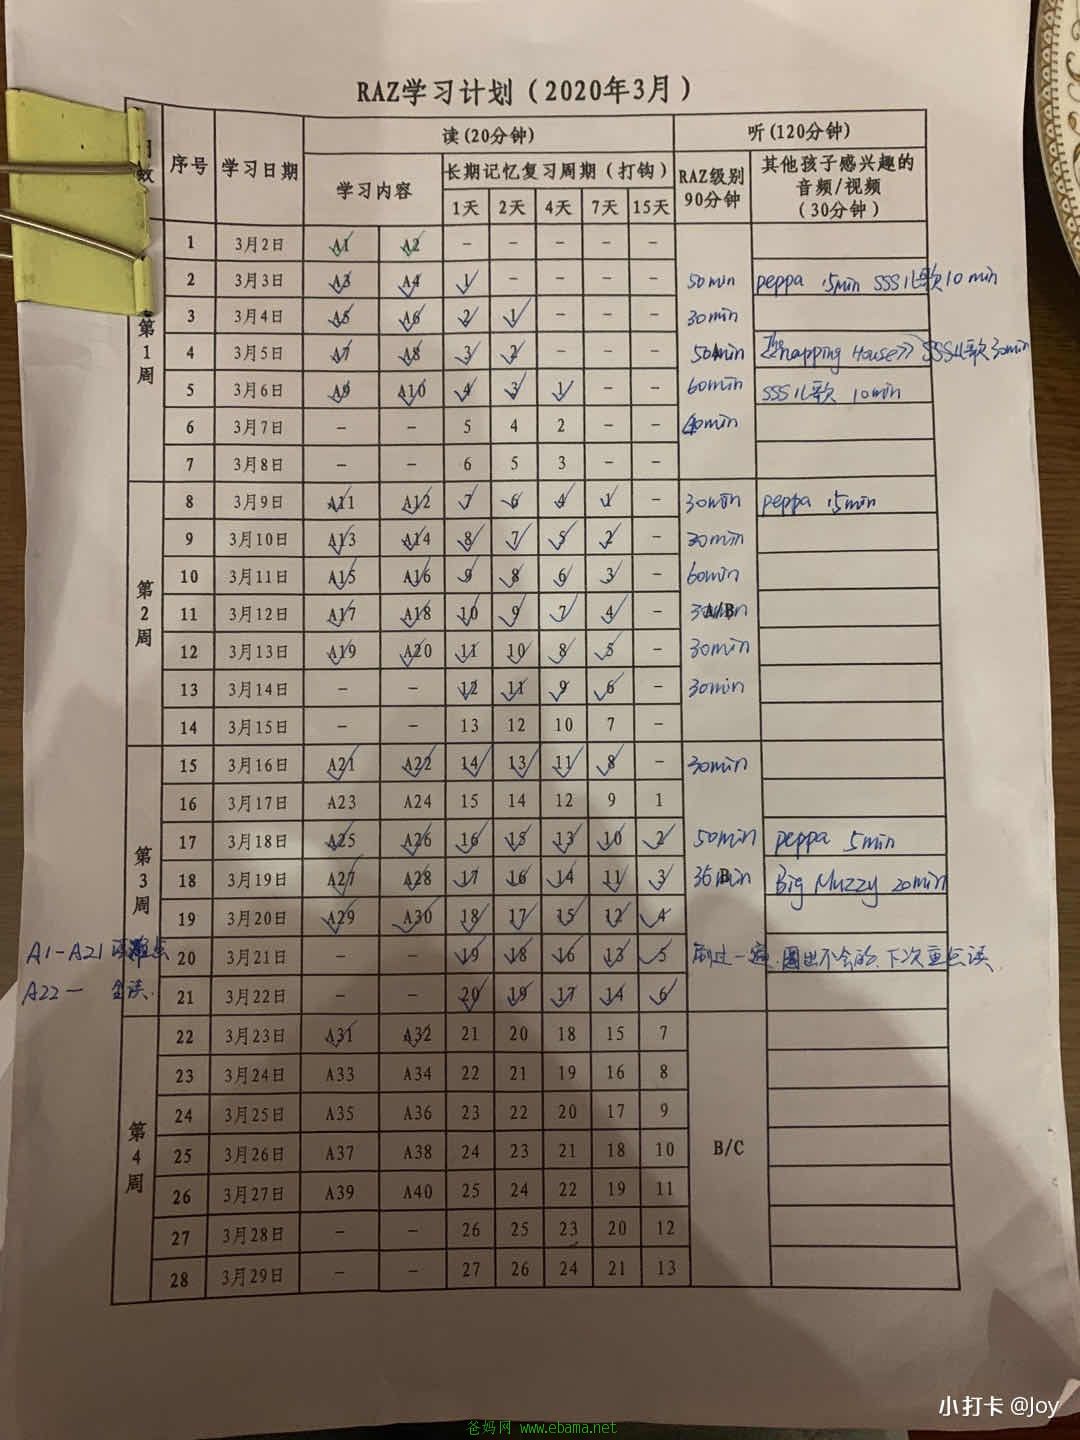 RAZ学习计划（2020年3月）
序号 学习日期 读(20分钟) 听(120分钟)
学习内容 长期记忆复习周期（打钩） RAZ级别 90分钟 其他孩子感兴趣的音频/视频（30分钟）
1天 2天 4天 7天 15天
第1周
1 3月2日 A1 A2 - - - - -
2 3月3日 A3 A4 1 - - - - 50min peppa 15min SSS儿歌10min
3 3月4日 A5 A6 2 1 - - - 30min
4 3月5日 A7 A8 3 2 - - - 50min 《The napping House》 SSS儿歌30min
5 3月6日 A9 A10 4 3 1 - - 60min SSS儿歌 10min
6 3月7日 - - 5 4 2 - - 40min
7 3月8日 - - 6 5 3 - -
第2周
8 3月9日 A11 A12 7 6 4 1 - 30min peppa 15min
9 3月10日 A13 A14 8 7 5 2 - 30min
10 3月11日 A15 A16 9 8 6 3 - 60min
11 3月12日 A17 A18 10 9 7 4 - A/B 30min
12 3月13日 A19 A20 11 10 8 5 - 30min
13 3月14日 - - 12 11 9 6 - 30min
14 3月15日 - - 13 12 10 7 -
第3周
15 3月16日 A21 A22 14 13 11 8 - 30min
16 3月17日 A23 A24 15 14 12 9 1
17 3月18日 A25 A26 16 15 13 10 2 50min peppa 5min
18 3月19日 A27 A28 17 16 14 11 3 B 35min Big Muzzy 20min
19 3月20日 A29 A30 18 17 15 12 4
A1-A21
20 3月21日 - - 19 18 16 13 5 一遍.圈出不会的.下次重点读.
A22一 全读.
21 3月22日 - - 20 19 17 14 6
第4周
22 3月23日 A31 A32 21 20 18 15 7
23 3月24日 A33 A34 22 21 19 16 8
24 3月25日 A35 A36 23 22 20 17 9
25 3月26日 A37 A38 24 23 21 18 10 B/C
26 3月27日 A39 A40 25 24 22 19 11
27 3月28日 - - 26 25 23 20 12
28 3月29日 - - 27 26 24 21 13
小打卡 @Joy
爸妈网 www.ebama.net